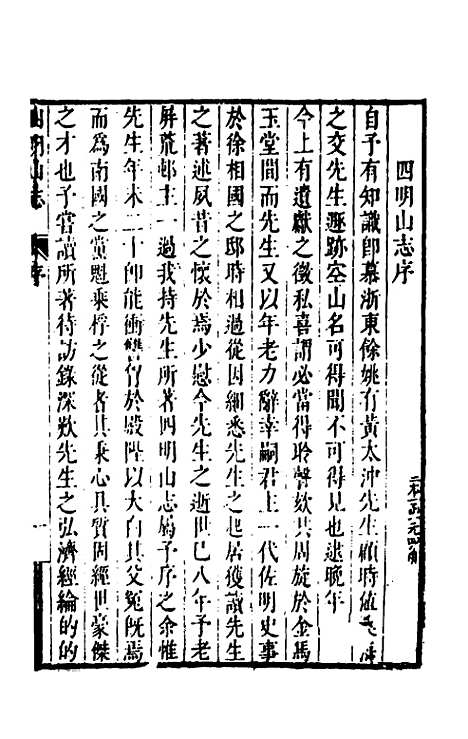 四明山志序
自予有知識卽慕浙東餘姚有黃太沖先生顧時值
之交先生遯跡空山名可得聞不可得見也逮晚年
今上有遺獻之徵私喜謂必當得聆謦欬共周旋於金馬
玉堂間而先生又以年老力辭幸嗣君主一代佐明史事
於徐相國之邸時相過從因細悉先生之起居獲讀先生
之著述夙昔之懷於焉少慰今先生之逝世已八年予老
屏荒邨主一過我持先生所著四明山志屬予序之余惟
先生年未二十卽能衝讐胷於殿陛以大白其父冤旣焉
而爲南國之黨魁乘桴之從者其秉心其質固經世豪傑
之才也予嘗讀所著待訪錄深歎先生之弘濟經綸的的
四明山志
序
一